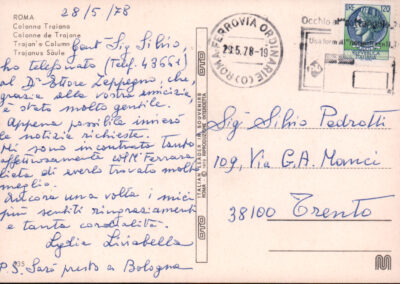 ROMA
Colonna Traiana
Colonne de Trajane
Trajan's Column
Trajanus Säule
28/5/78
Gent. Sig. Silvio,
ho telefonato (Telf. 43661)
al D. Ettore Zeppegno, che,
grazie alla vostra amicizia,
è stato molto gentile.
Appena possibile invierò
le notizie richieste.
Mi sono incontrata tanto
affettuosamente Ferrara
lieta di averlo trovato molto
meglio.
Ancora una volta i miei
più sentiti ringraziamenti
e tanta cordialità.
Lydia
P.S. Sarò presto a Bologna
OTO
ITALIAN LEADER IN SOUVENIRS
ROMA
OTO
ROMA FERROVIA ORDINARIE (C)
29.5.78-19
Occhio al
Usa forme
ITALIA
LIRE 120
Sig. Silvio Pedrotti
109, Via G.A. Manci
38100 Trento